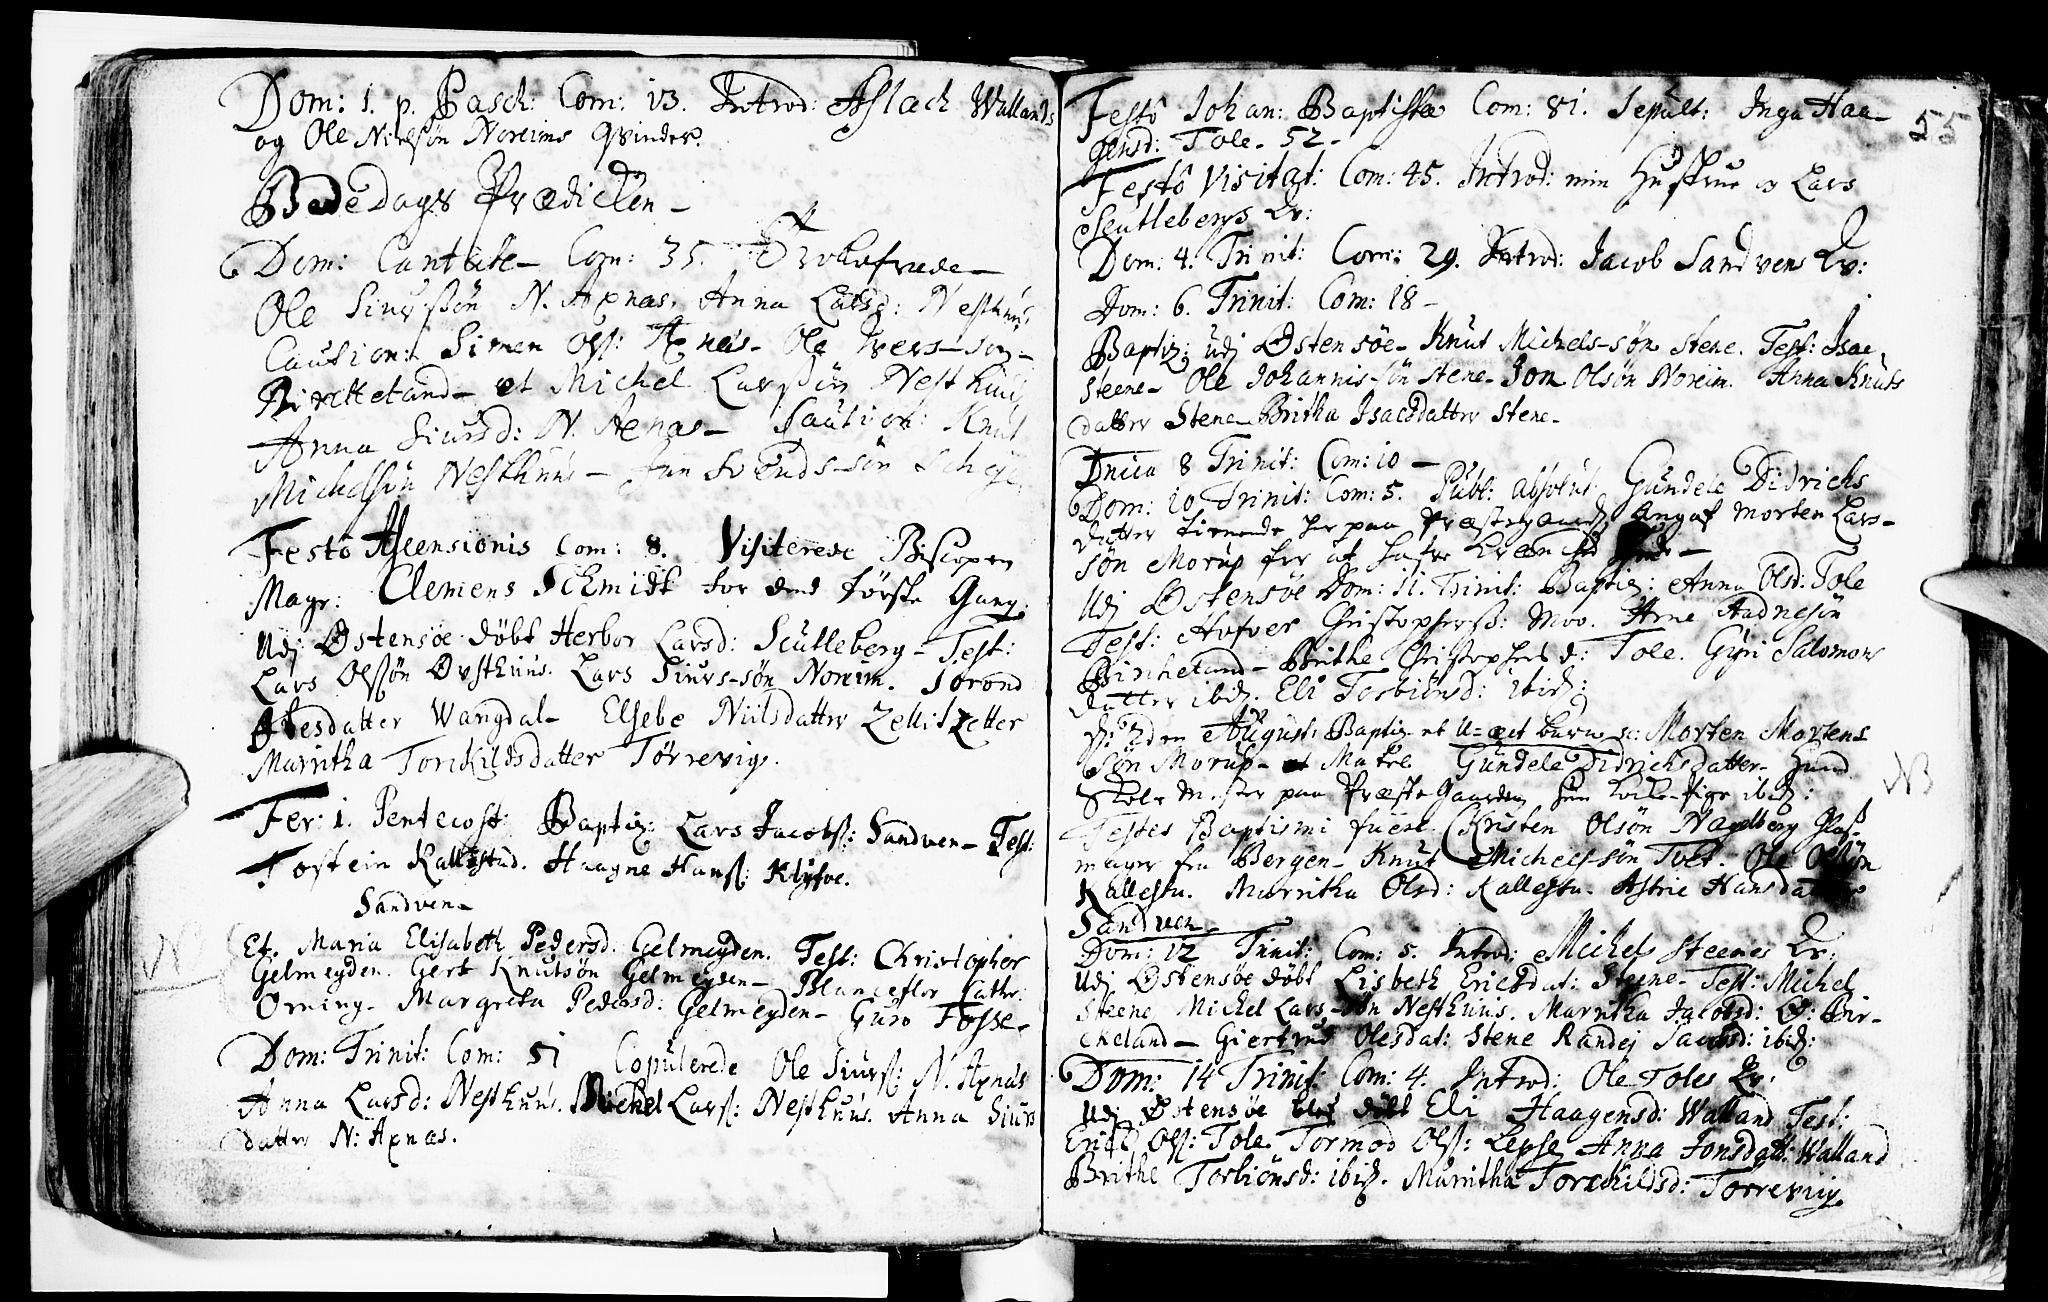 Dom: 1. p. Pasch: Com: 13. Introd: Aslach Wallands
og Ole Nielsøn Noreims Qvinder.
BedeDags Prædicken -
Dom: Cantate - Com: 35. Trolofvede -
Ole Siursøn N. Axnæs, Anna Larsd: Nesthuus
Caution: Simen Ols: Axnæs - Ole Ivers-søn -
Birkeland - et Michel Larssøn Nesthuus
Anna Siursd: N. Axnæs - Caution: Knut
Michelsøn Nesthuus - Jan Svends-søn
Festo Ascensionis Com: 8. Visiterede Biscopen
Magr: Clemens Schmidt for dend første Gang.
Udj Østensøe døbt Herbor Larsd: Scutleberg - Test:
Lars Olssøn Øvsthuus. Lars Siurs-søn Noreim. Torond
datter Wangdal - Elsebe Niilsdatter
Marritha Torkildsdatter Tørrevig.
Fer: 1. Pentecost: Baptiz: Lars Jacobs: Sandven - Test:
Tostein Kallestad. Haagne Hans: Klyfve.
Sandven -
Et. Maria Elisabeth Pedersd: Gelmeyden. Test: Christopher
Gelmeyden. Gert Knutsøn Gelmeyden - Blanceflor Cathr:
Orning - Margreta Pedersd: Gelmeyden - Guro Fosse -
Dom: Trinit: Com: 51 Copulerede Ole Siurs: N. Axnæs
Anna Larsd: Nesthuus. Michel Lars: Nesthuus. Anna Siurs
datter N: Axnæs.
55
Festo Johan: Baptistæ Com: 81. Sepult: Inga Haa-
gensd: Tole - 52 -
Festo Visitat: Com: 45. Introd: min Hustrue og Lars
Scutlebergs Qv:
Dom: 4. Trinit: Com: 29. Introd: Jacob Sandvens Qv:
Dom: 6. Trinit: Com: 18 -
Baptiz: udj Østensøe - Knut Michels-søn Stene. Test: Isac
Steene - Ole Johannis-søn Stene - Jon Olsøn Noreim. Anna Knuts
datter Stene - Britha Isacsdatter Stene -
Dnica 8 Trinit: Com: 10 -
Dom: 10 Trinit: Com: 5. Publ: absolut: Gundele Didrichs
datter tienende her paa Præstegaard, angaf Morten Lars-
søn Morup for at hafve
Udj Østensøe Dom: 11. Trinit: Baptiz: Anna Olsd: Tole
Test: Aufver Christophers: Moo. Arne Aadnesøn
Birkeland - Brithe Christophers d: Tole. Gyri Salomons
datter ibid. Eli Torbiønsd: ibid:
d: 2den August: Baptiz et U-æct barn n: Morten Mortens
søn Morup - Matre Gundele Didrichsdatter - Hand
Skole Mester paa Præste Gaarden ibid:
Testes Baptismi fuere. Christen Olsøn Nagelberg Glas-
mager fra Bergen - Knut Michels-søn Tolt. Ole Olssøn
Kallestu. Marritha Olsd: Kallestu. Astrie Hansdatter
Sandven -
NB
Dom: 12 Trinit: Com: 5. Introd: Michel Steenes Qv:
Udj Østensøe døbt Lisbeth Ericsdat: Steene - Test: Michel
Steene, Michel Lars-søn Nesthuus. Marritha Jacobsd: Ø: Bir-
ckeland - Giertrud Olesdat: Stene Randej Jacobsd: ibid:
Dom: 14 Trinit: Com: 4. Introd: Ole Toles Qv:
Udj Østensøe blef døbt Eli Haagensd: Walland Test:
Erich Ols: Tole. Tormod Ols: Lepse Anna Jonsdatt: Walland
Brithe Torbiønsd: ibid. Marritha Torckildsd: Torrevig.